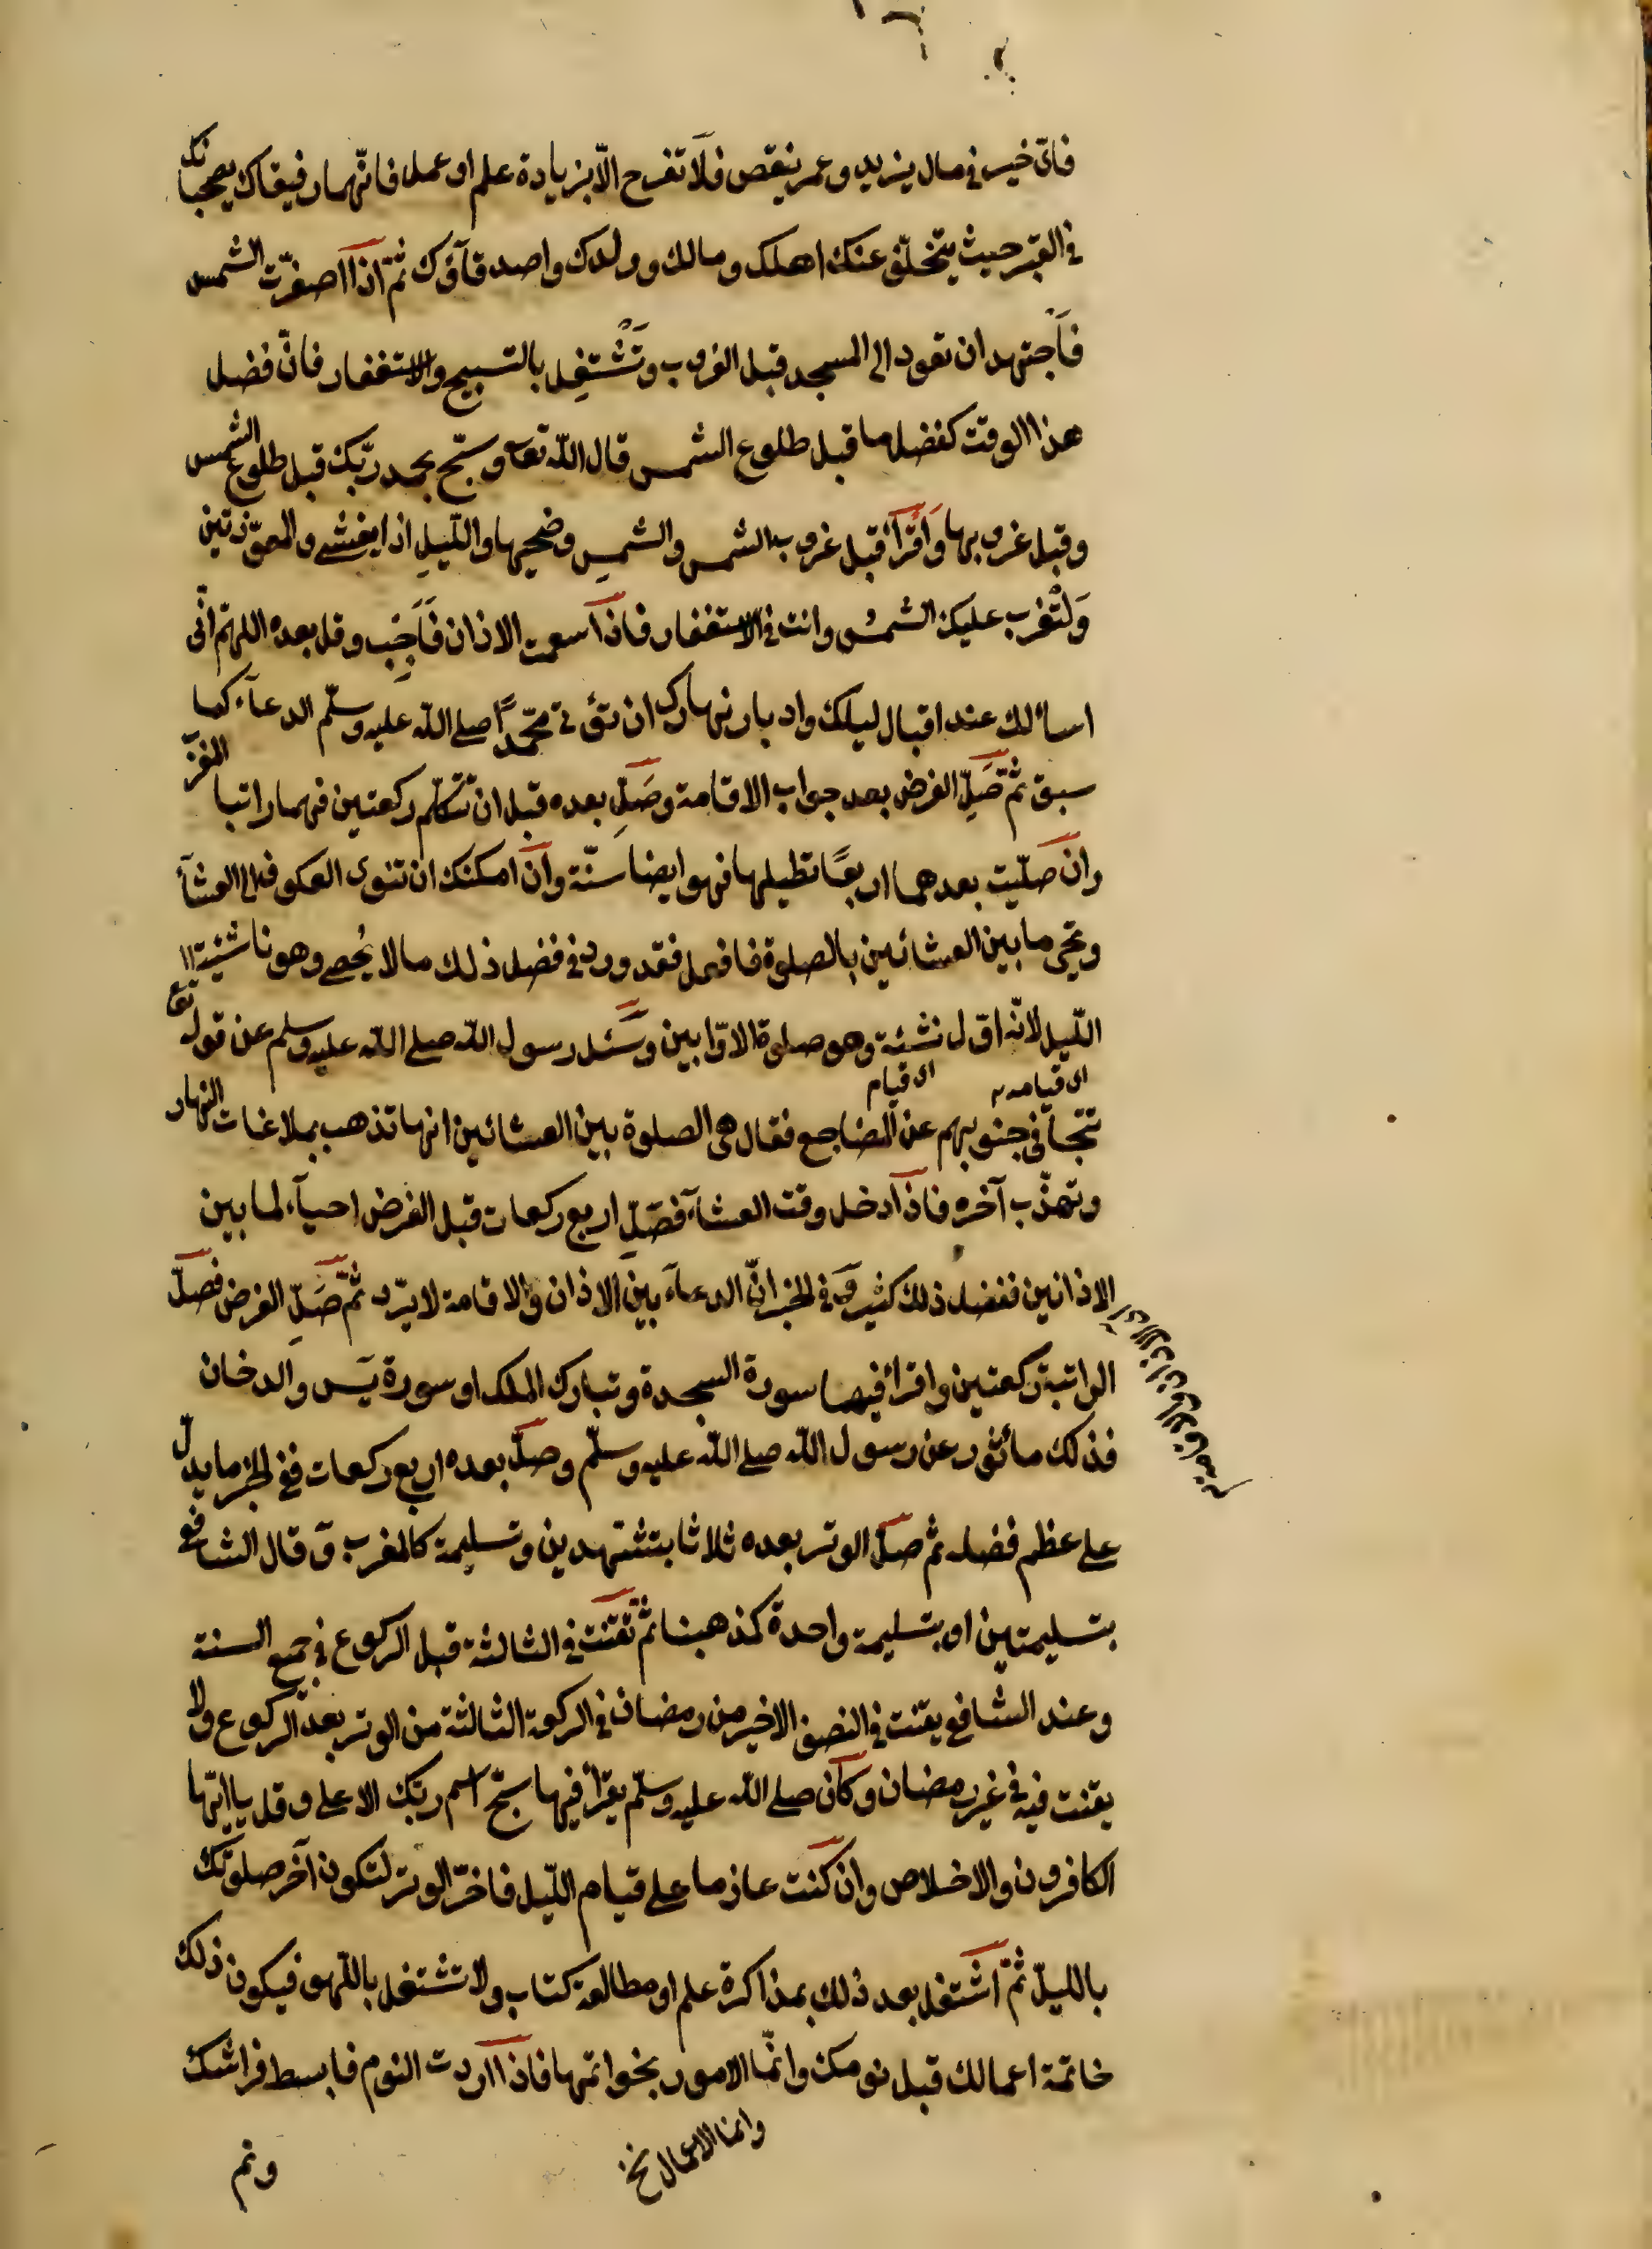 فاىّ خير فى مال يزيد وعمر ينقص فلا تفرح الّا بزيادة علم او عمل فانّهما رفيقاك يصحبانك
فى القبر حيث يتخلّف عنك اهلك ومالك وولدك واصدقآؤك ثمّ اذا اصفرّت الشمس
فاجتهد ان تعود الى المسجد قبل الغروب وتَشْتغِل بالتسبيح والاستغفار فانّ فضل
هذا الوقت كفضل ما قبل طلوع الشمس قال الله تعا وسبّح بحمد ربّك قبل طلوع الشمس
وقبل غروبها وَاقرأ قبل غروب الشمس والشمسِ وضحيها واللّيلِ اذا يغشى والمعوّذتين
وَلتْغرب عليك الشمسُ وانت فى الاستغفار فاذا سمعت الاذان فَاَجِب وقل بعده اللهمّ انّى
اسألك عند اقبال ليلك وادبار نهارك ان تؤتى محمّدًا صلى الله عليه وسلّم الدعآء كما
سبق ثمّ صَلِّ الفرض بعد جواب الاقامة وصَلِّ بعده قبل ان تتكلّم ركعتين فهما راتبا المغرب
وان صلّيت بعدهما اربعًا تطيلها فهو ايضا سنّة وان امكنك ان تنوى العكوف الى العشآء
وتحيى ما بين العشائين بالصلوة فافعل فقد ورد فى فضل ذلك ما لا يُحصى وهو ناشئة
اللّيل لانّه اوّل نشئة وهو صلوة الاوّابين وسئل رسول الله صلى الله عليه وسلم عن قوله تعا
اى قيامه اى قيام
تتجافى جنوبهم عن المضاجع فقال هى الصلوة بين العشائين انها تذهب بملاغات النهار
وتهذّب آخره فاذا دخل وقت العشآء فصَلِّ اربع ركعات قبل الفرض احيآء لما بين
الاذانين ففضل ذلك كثير وفى الخبر انّ الدعآء بين الاذان والاقامة لا يردّ ثمّ صَلِّ الفرض فصلّ
الراتبة ركعتين واقرأ فيهما سورة السجدة وتبارك الملك او سورة يٓس والدخان
فذلك مأثور عن رسول الله صلى الله عليه وسلّم وصلّ بعده اربع ركعات ففى الخبر ما يدلّ
على عظم فضله ثم صلّ الوتر بعده ثلاثا بتشهّدين وتسليمة كالمغرب وقال الشافعى
بتسليمتين او بتسليمة واحدة كمذهبنا ثمّ تقنت فى الثالثة قبل الركوع فى جميع السنة
وعند الشافعى يقنت فى النصف الاخير من رمضان فى الركعة الثالثة من الوتر بعد الركوع ولا
يقنت فيه فى غير رمضان وكان صلى الله عليه وسلّم يقرأ فيها سبّح اسم ربّك الاعلى وقل يا ايّها
الكافرون والاخلاص وان كنت عازما على قيام اللّيل فاخّر الوتر لتكون آخر صلوتك
بالليل ثمّ اشتغل بعد ذلك بمذاكرة علم او مطالعة كتاب ولا تشتغل باللّهو فيكون ذلك
خاتمة اعمالك قبل نومك وانّما الامور بخواتمها فاذا اردت النوم فابسط فراشك
وانما الاعمال نخ
ونم